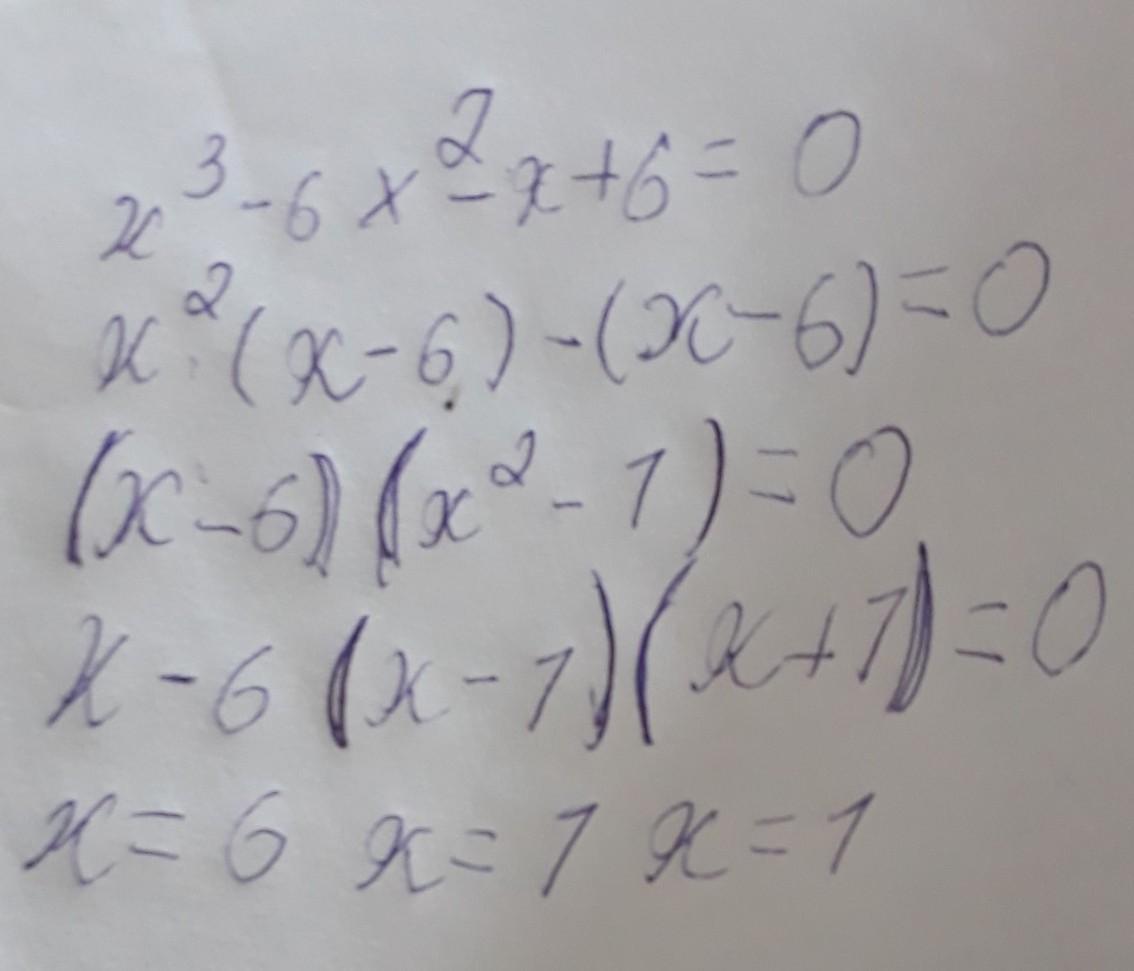 x³-6x²-x+6=0
x²(x-6)-(x-6)=0
(x-6)(x²-1)=0
x-6(x-1)(x+1)=0
x=6 x=1 x=1